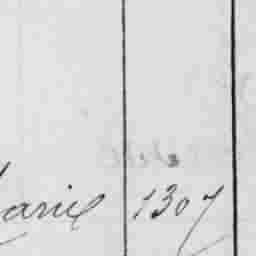 Marie 1307